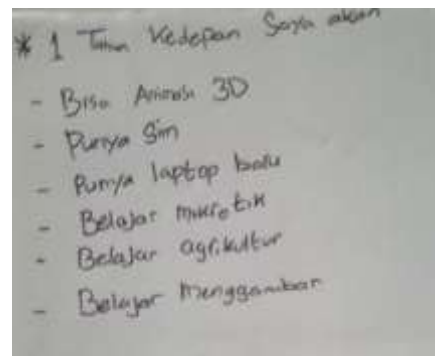 * 1 Tahun Kedepan Saya akan
- Bisa Animasi 3D
- Punya Sim
- Punya laptop balu
- Belajar mikrotik
- Belajar agrikultur
- Belajar menggambar